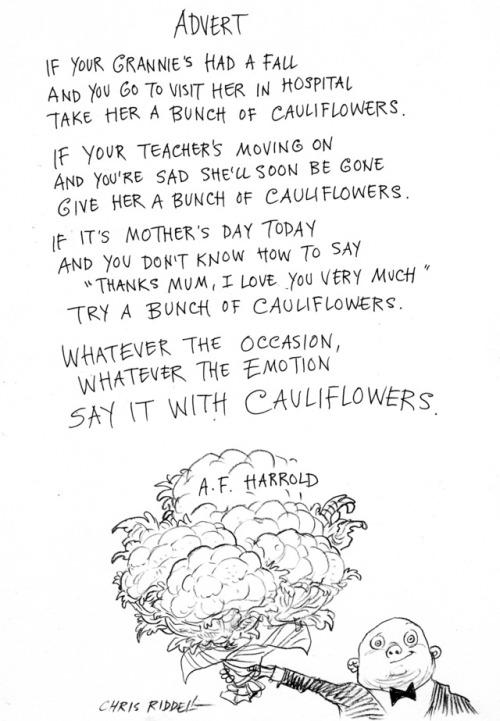 ADVERT
IF YOUR GRANNIE'S HAD A FALL
AND YOU GO TO VISIT HER IN HOSPITAL
TAKE HER A BUNCH OF CAULIFLOWERS.
IF YOUR TEACHER'S MOVING ON
AND YOU'RE SAD SHE'LL SOON BE GONE
GIVE HER A BUNCH OF CAULIFLOWERS.
IF IT'S MOTHER'S DAY TODAY
AND YOU DON'T KNOW HOW TO SAY
"THANKS MUM, I LOVE YOU VERY MUCH"
TRY A BUNCH OF CAULIFLOWERS.
WHATEVER THE OCCASION,
WHATEVER THE EMOTION
SAY IT WITH CAULIFLOWERS.
A.F. HARROLD
CHRIS RIDDELL